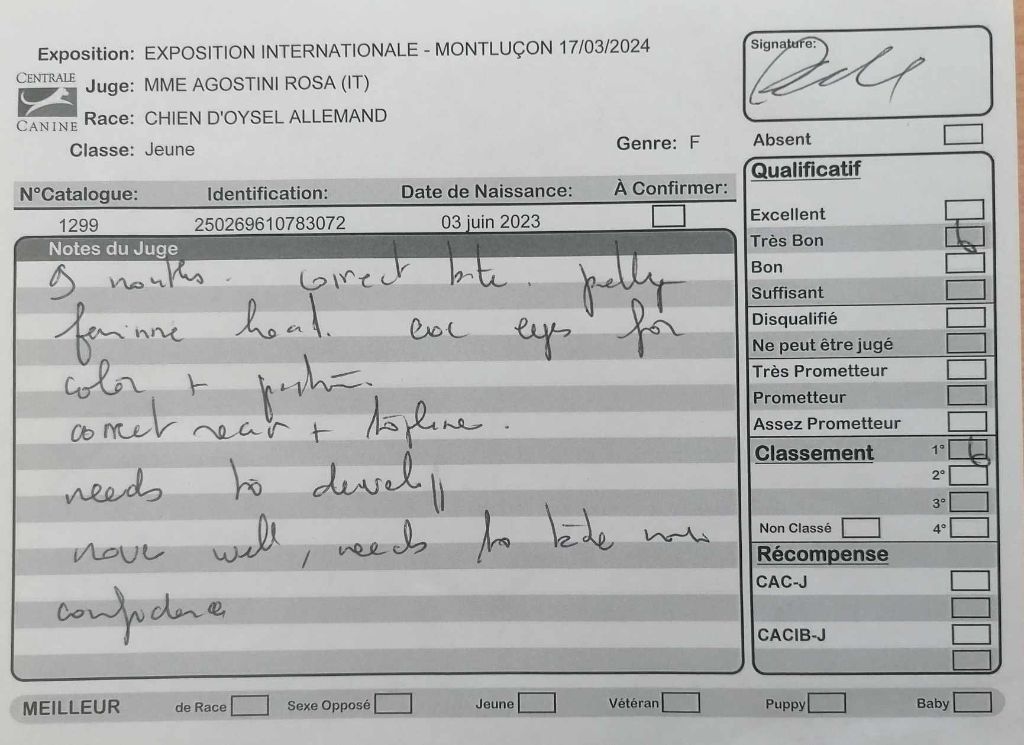 Exposition: EXPOSITION INTERNATIONALE - MONTLUÇON 17/03/2024
CENTRALE CANINE
Juge: MME AGOSTINI ROSA (IT)
Race: CHIEN D'OYSEL ALLEMAND
Classe: Jeune
Genre: F
N°Catalogue: Identification: Date de Naissance: À Confirmer:
1299 250269610783072 03 juin 2023
Notes du Juge
9 months. correct bite. pretty
feminine head. eyes for
color +
correct rear + topline.
needs to
move well, needs to take more
confidence
Signature:
Absent
Qualificatif
Excellent
Très Bon
Bon
Suffisant
Disqualifié
Ne peut être jugé
Très Prometteur
Prometteur
Assez Prometteur
Classement 1°
2°
3°
Non Classé 4°
Récompense
CAC-J
CACIB-J
MEILLEUR de Race Sexe Opposé Jeune Vétéran Puppy Baby